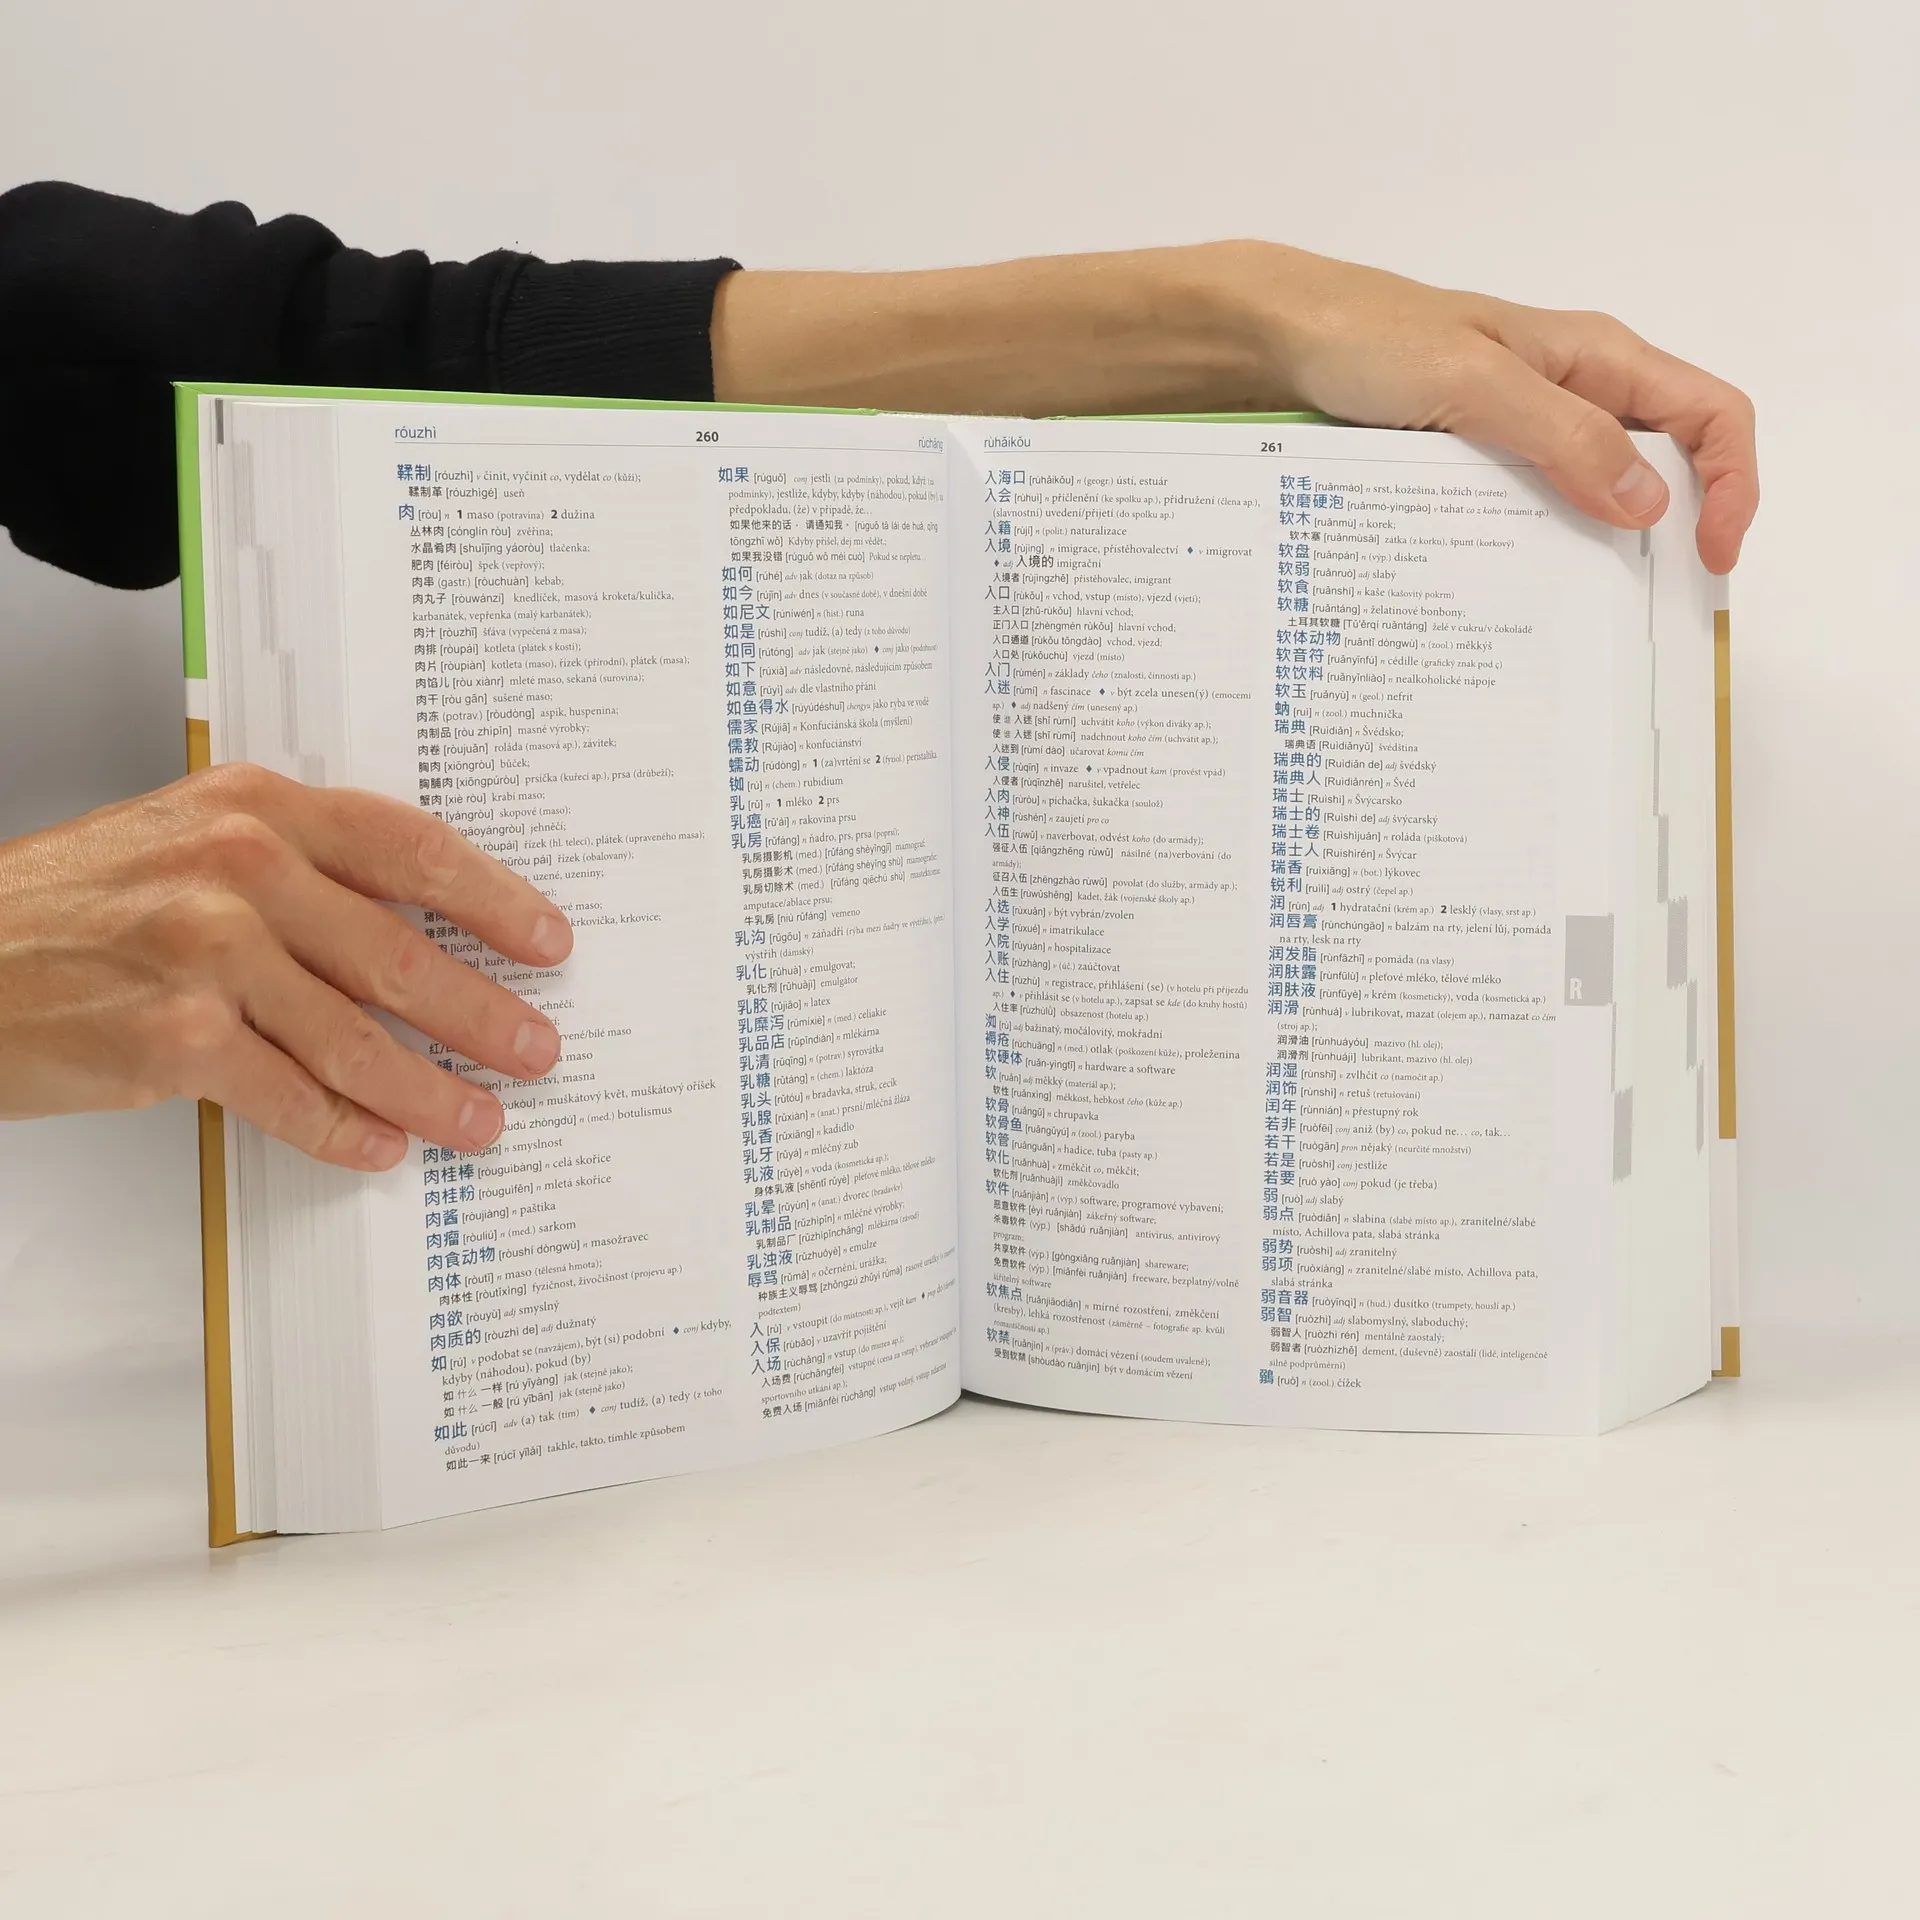 róuzhì 260 rùcháng
鞣制 [róuzhì] v činit, vyčinit co, vydělat co (kůži);
鞣制革 [róuzhìgé] useň
肉 [ròu] n 1 maso (potravina) 2 dužina
丛林肉 [cónglín ròu] zvěřina;
水晶肴肉 [shuǐjīng yáoròu] tlačenka;
肥肉 [féiròu] špek (vepřový);
肉串 (gastr.) [ròuchuàn] kebab;
肉丸子 [ròuwánzi] knedlíček, masová kroketa/kulička,
karbanátek, vepřenka (malý karbanátek);
肉汁 [ròuzhī] šťáva (vypečená z masa);
肉排 [ròupái] kotleta (plátek s kostí);
肉片 [ròupiàn] kotleta (maso), řízek (přírodní), plátek (masa);
肉馅儿 [ròu xiànr] mleté maso, sekaná (surovina);
肉干 [ròu gān] sušené maso;
肉冻 (potrav.) [ròudòng] aspik, huspenina;
肉制品 [ròu zhìpǐn] masné výrobky;
肉卷 [ròujuǎn] roláda (masová ap.), závitek;
胸肉 [xiōngròu] bůček;
胸脯肉 [xiōngpúròu] prsíčka (kuřecí ap.), prsa (drůbeží);
蟹肉 [xiè ròu] krabí maso;
肉 [yángròu] skopové (maso);
[gāoyángròu] jehněčí;
ròupái] řízek (hl. telecí), plátek (upraveného masa);
ròu pái] řízek (obalovaný);
uzené, uzeniny;
maso;
krkovička, krkovice;
kuře
sušené maso;
jehněčí;
červené/bílé maso
maso
n řeznictví, masna
n muškátový květ, muškátový oříšek
zhòngdú] n (med.) botulismus
肉感 n smyslnost
肉桂棒 [ròuguìbàng] n celá skořice
肉桂粉 [ròuguìfěn] n mletá skořice
肉酱 [ròujiàng] n paštika
肉瘤 [ròuliú] n (med.) sarkom
肉食动物 [ròushí dòngwù] n masožravec
肉体 [ròutǐ] n maso (tělesná hmota);
肉体性 [ròutǐxìng] fyzičnost, živočišnost (projevu ap.)
肉欲 [ròuyù] adj smyslný
肉质的 [ròuzhì de] adj dužnatý
如 [rú] v podobat se (navzájem), být (si) podobní ♦ conj kdyby,
kdyby (náhodou), pokud (by)
如 什么 一样 [rú yīyàng] jak (stejně jako);
如 什么 一般 [rú yībān] jak (stejně jako)
如此 [rúcǐ] adv (a) tak (tím) ♦ conj tudíž, (a) tedy (z toho
důvodu)
如此一来 [rúcǐ yīlái] takhle, takto, tímhle způsobem
如果 [rúguǒ] conj jestli (za podmínky), pokud, když (za
podmínky), jestliže, kdyby, kdyby (náhodou), pokud (by), za
předpokladu, (že) v případě, že…
如果他来的话，请通知我。 [rúguǒ tā lái de huà, qǐng
tōngzhī wǒ] Kdyby přišel, dej mi vědět.;
如果我没错 [rúguǒ wǒ méi cuò] Pokud se nepletu…
如何 [rúhé] adv jak (dotaz na způsob)
如今 [rújīn] adv dnes (v současné době), v dnešní době
如尼文 [rúníwén] n (hist.) runa
如是 [rúshì] conj tudíž, (a) tedy (z toho důvodu)
如同 [rútóng] adv jak (stejně jako) ♦ conj jako (podobnost)
如下 [rúxià] adv následovně, následujícím způsobem
如意 [rúyì] adv dle vlastního přání
如鱼得水 [rúyúdéshuǐ] chengyu jako ryba ve vodě
儒家 [Rújiā] n Konfuciánská škola (myšlení)
儒教 [Rújiào] n konfuciánství
蠕动 [rúdòng] n 1 (za)vrtění se 2 (fyziol.) peristaltika
铷 [rú] n (chem.) rubidium
乳 [rǔ] n 1 mléko 2 prs
乳癌 [rǔ'ái] n rakovina prsu
乳房 [rǔfáng] n ňadro, prs, prsa (poprsí);
乳房摄影机 (med.) [rǔfáng shèyǐngjī] mamograf;
乳房摄影术 (med.) [rǔfáng shèyǐng shù] mamografie;
乳房切除术 (med.) [rǔfáng qiēchú shù] mastektomie,
amputace/ablace prsu;
牛乳房 [niú rǔfáng] vemeno
乳沟 [rǔgōu] n záňadří (rýha mezi ňadry ve výstřihu), (přen.)
výstřih (dámský)
乳化 [rǔhuà] v emulgovat;
乳化剂 [rǔhuàjì] emulgátor
乳胶 [rǔjiāo] n latex
乳糜泻 [rǔmíxiè] n (med.) celiakie
乳品店 [rǔpǐndiàn] n mlékárna
乳清 [rǔqīng] n (potrav.) syrovátka
乳糖 [rǔtáng] n (chem.) laktóza
乳头 [rǔtóu] n bradavka, struk, cecík
乳腺 [rǔxiàn] n (anat.) prsní/mléčná žláza
乳香 [rǔxiāng] n kadidlo
乳牙 [rǔyá] n mléčný zub
乳液 [rǔyè] n voda (kosmetická ap.);
身体乳液 [shēntǐ rǔyè] pleťové mléko, tělové mléko
乳晕 [rǔyùn] n (anat.) dvorec (bradavky)
乳制品 [rǔzhìpǐn] n mléčné výrobky;
乳制品厂 [rǔzhìpǐnchǎng] mlékárna (závod)
乳浊液 [rǔzhuóyè] n emulze
辱骂 [rǔmà] n očernění, urážka;
种族主义辱骂 [zhǒngzú zhǔyì rǔmà] rasové urážky
podtextem)
入 [rù] v vstoupit (do místnosti ap.), vejít kam ♦ prep do
入保 [rùbǎo] v uzavřít pojištění
入场 [rùchǎng] n vstup (do muzea ap.);
入场费 [rùchǎngfèi] vstupné (cena za vstup), vybrané vstupné
sportovního utkání ap.);
免费入场 [miǎnfèi rùchǎng] vstup volný, vstup zdarma
rùhǎikǒu 261
入海口 [rùhǎikǒu] n (geogr.) ústí, estuár
入会 [rùhuì] n přičlenění (ke spolku ap.), přidružení (člena ap.),
(slavnostní) uvedení/přijetí (do spolku ap.)
入籍 [rùjí] n (polit.) naturalizace
入境 [rùjìng] n imigrace, přistěhovalectví ♦ v imigrovat
♦ adj 入境的 imigrační
入境者 [rùjìngzhě] přistěhovalec, imigrant
入口 [rùkǒu] n vchod, vstup (místo), vjezd (vjetí);
主入口 [zhǔ-rùkǒu] hlavní vchod;
正门入口 [zhèngmén rùkǒu] hlavní vchod;
入口通道 [rùkǒu tōngdào] vchod, vjezd;
入口处 [rùkǒuchù] vjezd (místo)
入门 [rùmén] n základy čeho (znalostí, činnosti ap.)
入迷 [rùmí] n fascinace ♦ v být zcela unesen(ý) (emocemi
ap.) ♦ adj nadšený čím (unesený ap.)
使 谁 入迷 [shǐ rùmí] uchvátit koho (výkon diváky ap.);
使 谁 入迷 [shǐ rùmí] nadchnout koho čím (uchvátit ap.);
入迷到 [rùmí dào] učarovat komu čím
入侵 [rùqīn] n invaze ♦ v vpadnout kam (provést vpád)
入侵者 [rùqīnzhě] narušitel, vetřelec
入肉 [rùròu] n píchačka, šukačka (soulož)
入神 [rùshén] n zaujetí pro co
入伍 [rùwǔ] v naverbovat, odvést koho (do armády);
强征入伍 [qiǎngzhēng rùwǔ] násilné (na)verbování (do
armády);
征召入伍 [zhēngzhào rùwǔ] povolat (do služby, armády ap.);
入伍生 [rùwǔshēng] kadet, žák (vojenské školy ap.)
入选 [rùxuǎn] v být vybrán/zvolen
入学 [rùxué] n imatrikulace
入院 [rùyuàn] n hospitalizace
入账 [rùzhàng] v (úč.) zaúčtovat
入住 [rùzhù] n registrace, přihlášení (se) (v hotelu při příjezdu
ap.) ♦ v přihlásit se (v hotelu ap.), zapsat se kde (do knihy hostů)
入住率 [rùzhùlǜ] obsazenost (hotelu ap.)
洳 [rù] adj bažinatý, močálovitý, mokřadní
褥疮 [rùchuāng] n (med.) otlak (poškození kůže), proleženina
软硬体 [ruǎn-yìngtǐ] n hardware a software
软 [ruǎn] adj měkký (materiál ap.);
软性 [ruǎnxìng] měkkost, hebkost čeho (kůže ap.)
软骨 [ruǎngǔ] n chrupavka
软骨鱼 [ruǎngǔyú] n (zool.) paryba
软管 [ruǎnguǎn] n hadice, tuba (pasty ap.)
软化 [ruǎnhuà] v změkčit co, měkčit;
软化剂 [ruǎnhuàjì] změkčovadlo
软件 [ruǎnjiàn] n (výp.) software, programové vybavení;
恶意软件 [èyì ruǎnjiàn] zákeřný software;
杀毒软件 (výp.) [shādú ruǎnjiàn] antivirus, antivirový
program;
共享软件 (výp.) [gòngxiǎng ruǎnjiàn] shareware;
免费软件 (výp.) [miǎnfèi ruǎnjiàn] freeware, bezplatný/volně
šiřitelný software
软焦点 [ruǎnjiāodiǎn] n mírné rozostření, změkčení
(kresby), lehká rozostřenost (záměrně – fotografie ap. kvůli
romantičnosti ap.)
软禁 [ruǎnjìn] n (práv.) domácí vězení (soudem uvalené);
受到软禁 [shòudào ruǎnjìn] být v domácím vězení
软毛 [ruǎnmáo] n srst, kožešina, kožich (zvířete)
软磨硬泡 [ruǎnmó-yìngpào] v tahat co z koho (mámit ap.)
软木 [ruǎnmù] n korek;
软木塞 [ruǎnmùsāi] zátka (z korku), špunt (korkový)
软盘 [ruǎnpán] n (výp.) disketa
软弱 [ruǎnruò] adj slabý
软食 [ruǎnshí] n kaše (kašovitý pokrm)
软糖 [ruǎntáng] n želatinové bonbony;
土耳其软糖 [Tǔ'ěrqí ruǎntáng] želé v cukru/v čokoládě
软体动物 [ruǎntǐ dòngwù] n (zool.) měkkýš
软音符 [ruǎnyīnfú] n cédille (grafický znak pod ç)
软饮料 [ruǎnyǐnliào] n nealkoholické nápoje
软玉 [ruǎnyù] n (geol.) nefrit
蚋 [ruì] n (zool.) muchnička
瑞典 [Ruìdiǎn] n Švédsko;
瑞典语 [Ruìdiǎnyǔ] švédština
瑞典的 [Ruìdiǎn de] adj švédský
瑞典人 [Ruìdiǎnrén] n Švéd
瑞士 [Ruìshì] n Švýcarsko
瑞士的 [Ruìshì de] adj švýcarský
瑞士卷 [Ruìshìjuǎn] n roláda (piškotová)
瑞士人 [Ruìshìrén] n Švýcar
瑞香 [ruìxiāng] n (bot.) lýkovec
锐利 [ruìlì] adj ostrý (čepel ap.)
润 [rùn] adj 1 hydratační (krém ap.) 2 lesklý (vlasy, srst ap.)
润唇膏 [rùnchúngāo] n balzám na rty, jelení lůj, pomáda
na rty, lesk na rty
润发脂 [rùnfàzhī] n pomáda (na vlasy)
润肤露 [rùnfūlù] n pleťové mléko, tělové mléko
润肤液 [rùnfūyè] n krém (kosmetický), voda (kosmetická ap.)
润滑 [rùnhuá] v lubrikovat, mazat (olejem ap.), namazat co čím
(stroj ap.);
润滑油 [rùnhuáyóu] mazivo (hl. olej);
润滑剂 [rùnhuájì] lubrikant, mazivo (hl. olej)
润湿 [rùnshī] v zvlhčit co (namočit ap.)
润饰 [rùnshì] n retuš (retušování)
闰年 [rùnnián] n přestupný rok
若非 [ruòfēi] conj aniž (by) co, pokud ne… co, tak…
若干 [ruògān] pron nějaký (neurčité množství)
若是 [ruòshì] conj jestliže
若要 [ruò yào] conj pokud (je třeba)
弱 [ruò] adj slabý
弱点 [ruòdiǎn] n slabina (slabé místo ap.), zranitelné/slabé
místo, Achillova pata, slabá stránka
弱势 [ruòshì] adj zranitelný
弱项 [ruòxiàng] n zranitelné/slabé místo, Achillova pata,
slabá stránka
弱音器 [ruòyīnqì] n (hud.) dusítko (trumpety, houslí ap.)
弱智 [ruòzhì] adj slabomyslný, slaboduchý;
弱智人 [ruòzhì rén] mentálně zaostalý;
弱智者 [ruòzhìzhě] dement, (duševně) zaostalí (lidé, inteligenčně
silně podprůměrní)
鶸 [ruò] n (zool.) čížek
R